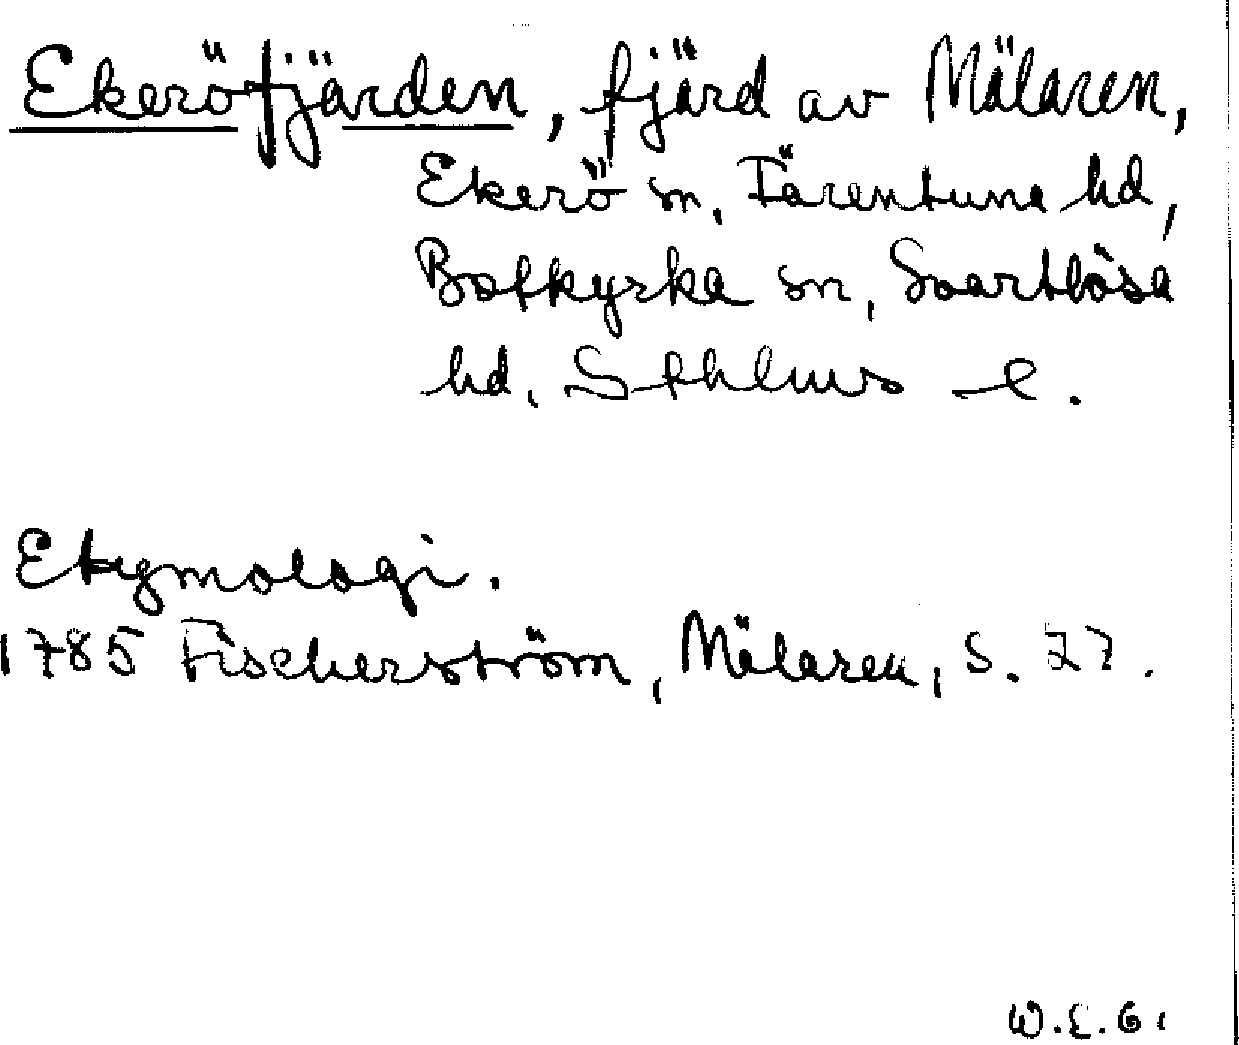 Ekeröfjärden, fjärd av Mälaren,
Ekerö sn, Färentuna hd,
Botkyrka sn, Svartlösa
hd, Sthlms l.
Etymologi.
1785 Fischerström, Mälaren, s. 77.
W.E.G.